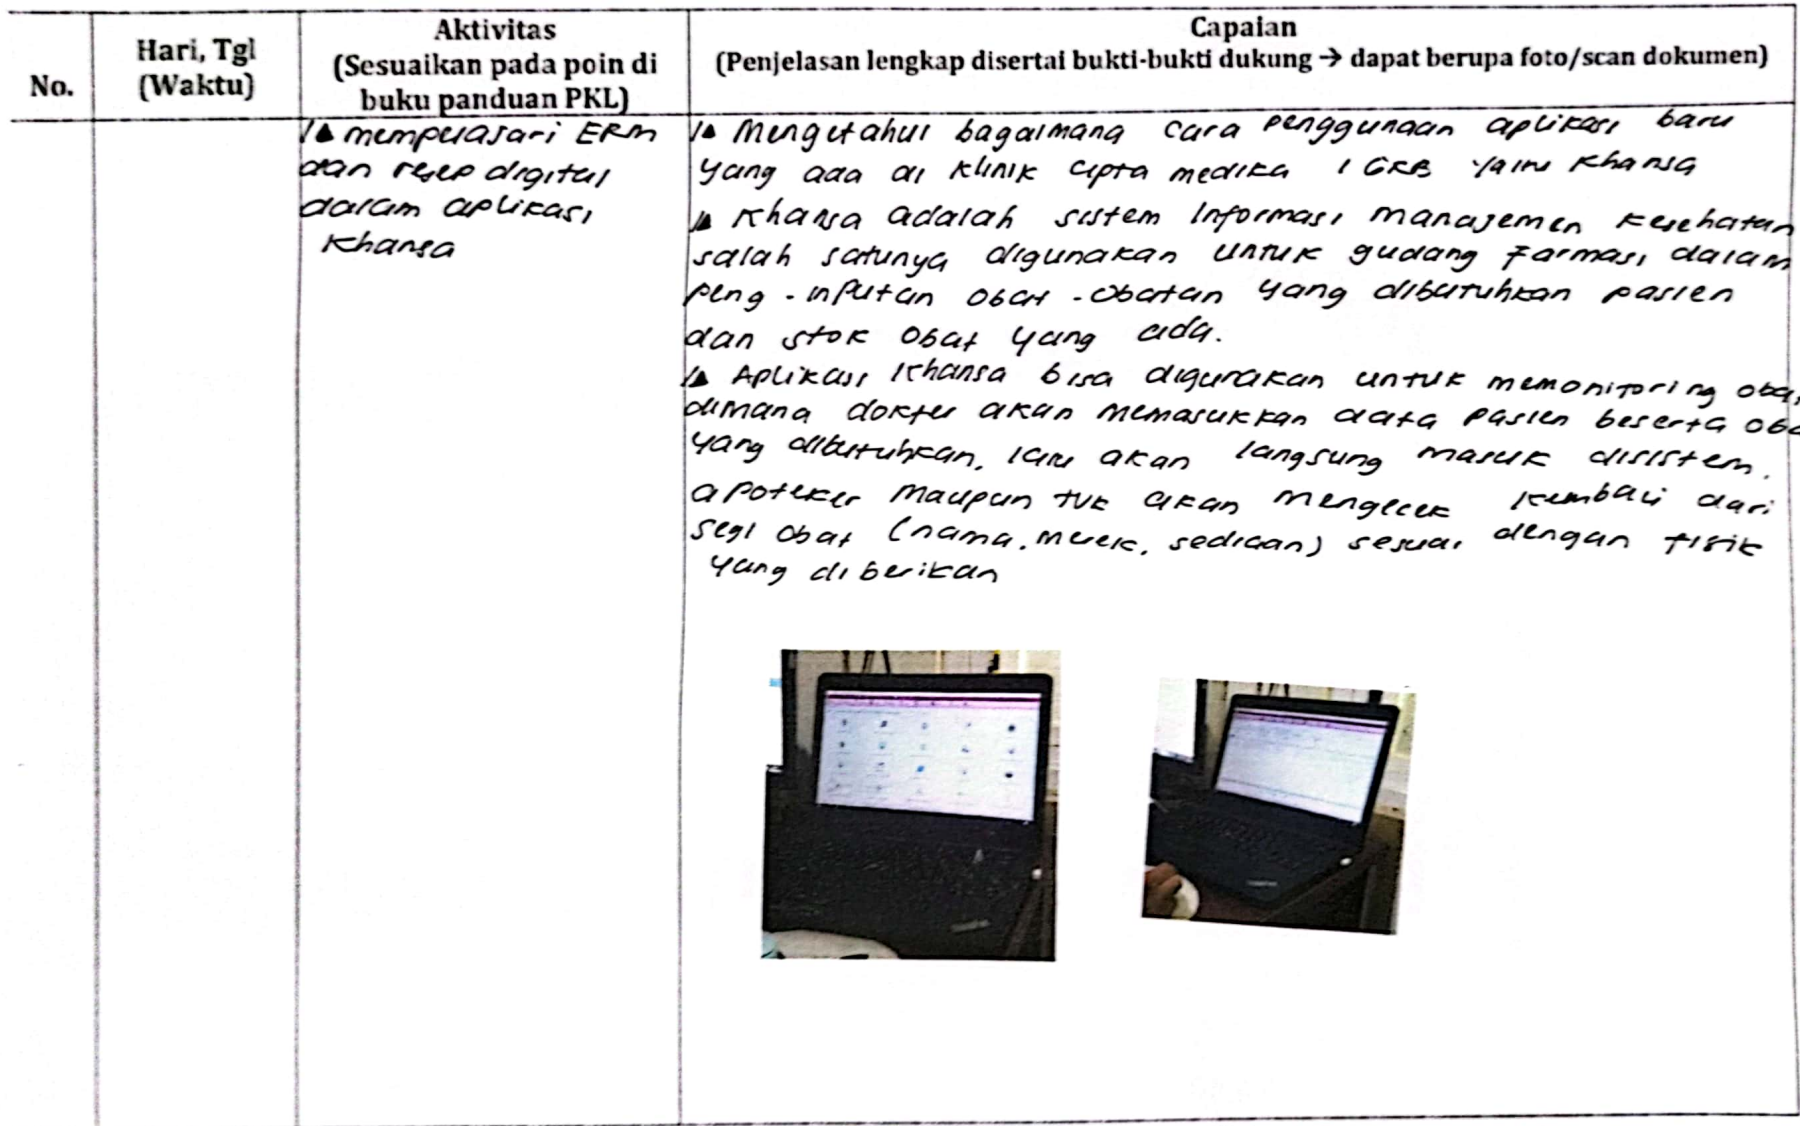 No.
Hari, Tgl
(Waktu)
Aktivitas
(Sesuaikan pada poin di
buku panduan PKL)
Capaian
(Penjelasan lengkap disertai bukti-bukti dukung → dapat berupa foto/scan dokumen)
mempelajari ERM
dan resep digital
dalam aplikasi
Khansa
Mengetahui bagaimana cara penggunaan aplikasi baru
yang ada di Klinik cipta medika 1 GKB yaitu Khansa
Khansa adalah sistem Informasi manajemen kesehatan
salah satunya digunakan untuk gudang Farmasi dalam
peng-inputan obat-obatan yang dibutuhkan pasien
dan stok obat yang ada.
Aplikasi Khansa bisa digunakan untuk memonitoring obat
dimana dokter akan memasukkan data pasien beserta
yang dibutuhkan, lalu akan langsung masuk disistem.
apoteker maupun TVK akan mengecek kembali dari
segi obat (nama, merek, sediaan) sesuai dengan fisik
yang diberikan